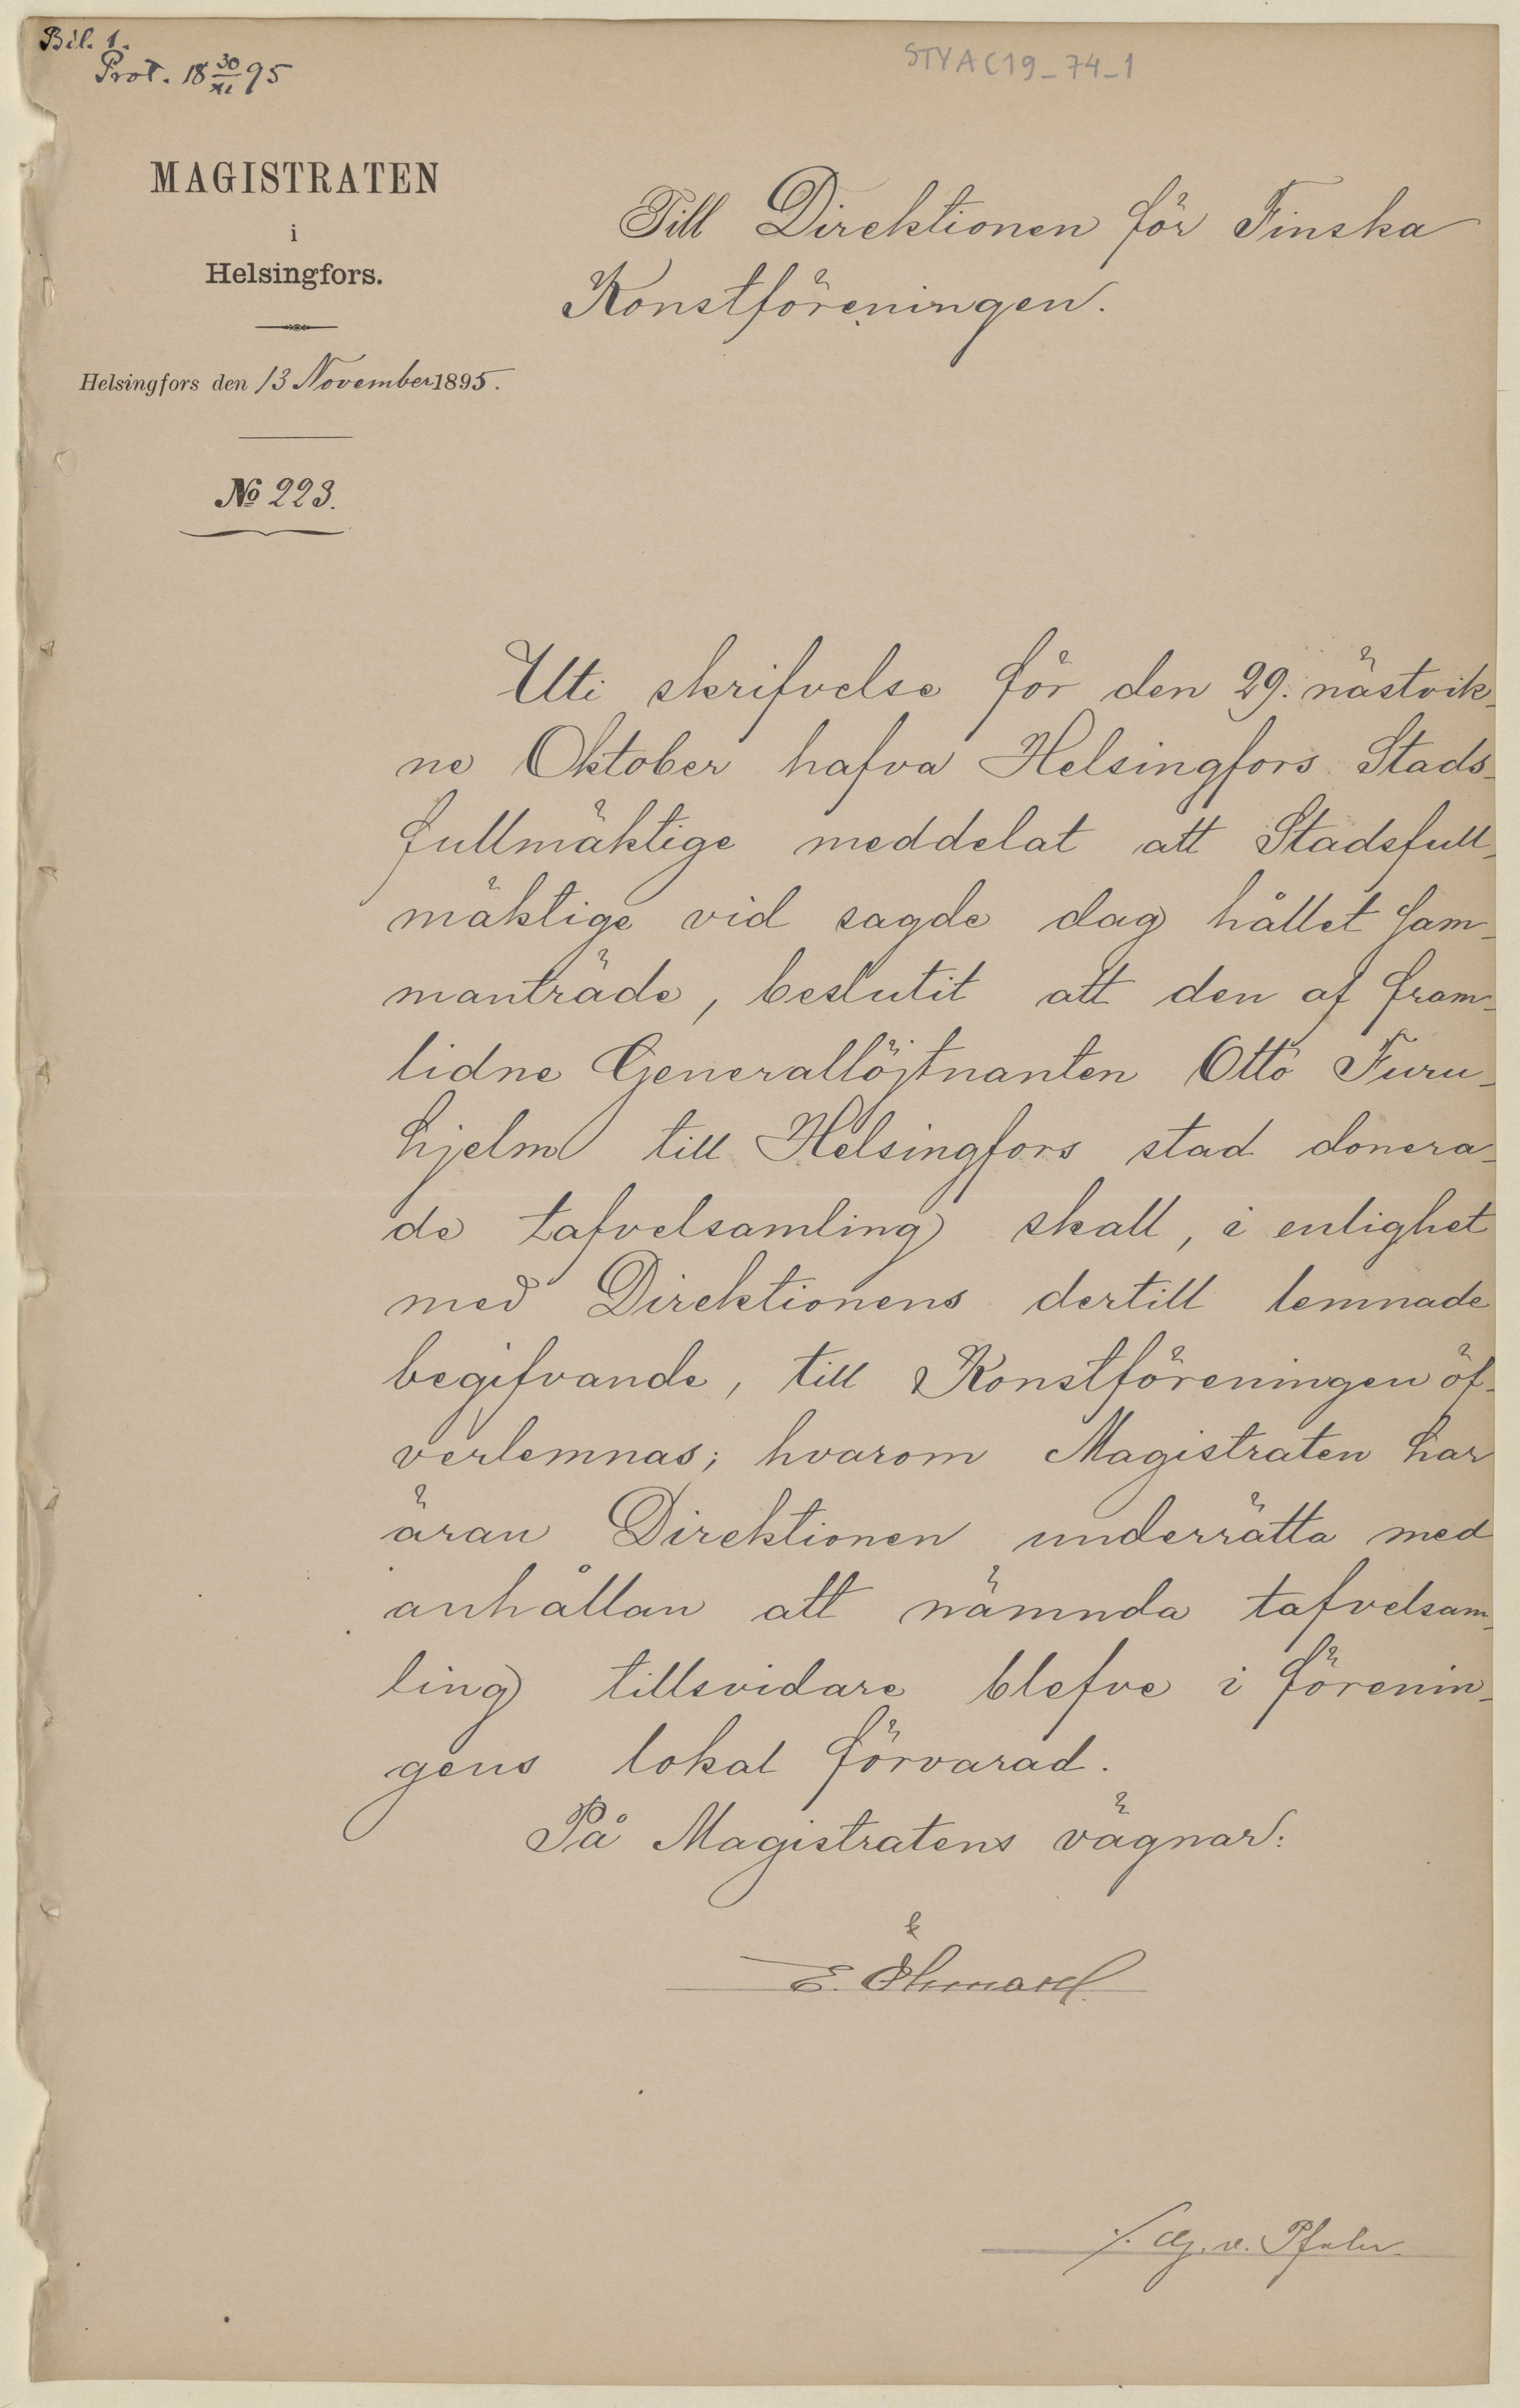 Bil. 1.
Prot. 18 30/XI 95
STYAC19_74_1
MAGISTRATEN
i
Helsingfors.
Helsingfors den 13 November 1895.
No 223.
Till Direktionen för Finska
Konstföreningen.
Uti skrifvelse för den 29. nästvik-
ne Oktober hafva Helsingfors Stads-
fullmäktige meddelat att Stadsfull-
mäktige vid sagde dag hållet sam-
manträde, beslutit att den af fram-
lidne Generallöjtnanten Otto Furu-
hjelm till Helsingfors stad donera-
de tafvelsamling skall, i enlighet
med Direktionens dertill lemnade
begifvande, till Konstföreningen öf-
verlemnas; hvarom Magistraten har
äran Direktionen underrätta med
anhållan att nämnda tafvelsam-
ling tillsvidare blefve i förenin-
gens lokal förvarad.
På Magistratens vägnar:
E. Öhman
v. Pfaler